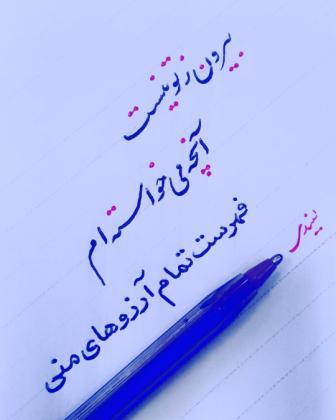 بیرون ز تو نیست
آنچه می‌خواسته‌ام
فهرست تمام آرزوهای منی